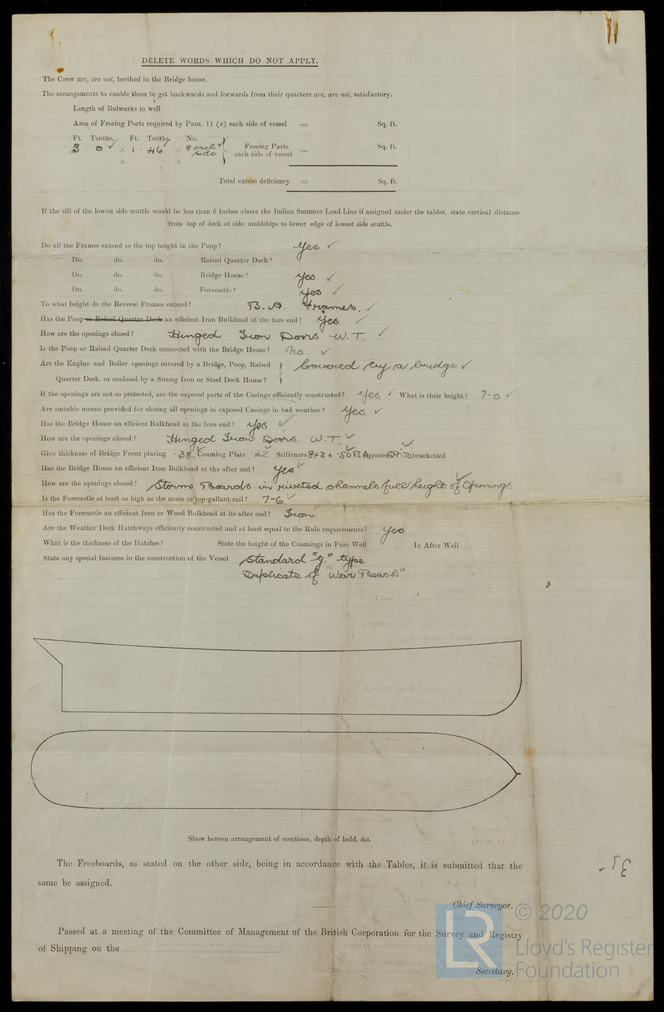 DELETE WORDS WHICH DO NOT APPLY.
The Crew are, are not, berthed in the Bridge house.
The arrangements to enable them to get backwards and forwards from their quarters are, are not, satisfactory.
Length of Bulwarks in well
Area of Freeing Ports required by Para. 11 (e) each side of vessel = Sq. ft.
Ft. Tenths. Ft. Tenths. No.
3 . 0 × 1 . 46 × 8 each side } Freeing Ports each side of vessel = Sq. ft.
× ×
Total excess deficiency = Sq. ft.
If the sill of the lowest side scuttle would be less than 6 inches above the Indian Summer Load Line if assigned under the tables, state vertical distance
from top of deck at side amidships to lower edge of lowest side scuttle.
Do all the Frames extend to the top height in the Poop? Yes ✓
Do. do. do. Raised Quarter Deck?
Do. do. do. Bridge House? Yes ✓
Do. do. do. Forecastle? Yes ✓
To what height do the Reverse Frames extend? B.A. Frames. ✓
Has the Poop or Raised Quarter Deck an efficient Iron Bulkhead at the fore end? Yes ✓
How are the openings closed? Hinged Iron Doors W.T. ✓
Is the Poop or Raised Quarter Deck connected with the Bridge House? No ✓
Are the Engine and Boiler openings covered by a Bridge, Poop, Raised
Quarter Deck, or enclosed by a Strong Iron or Steel Deck House? } Covered by a bridge ✓
If the openings are not so protected, are the exposed parts of the Casings efficiently constructed? Yes ✓ What is their height? 7-0 ✓
Are suitable means provided for closing all openings in exposed Casings in bad weather? Yes. ✓
Has the Bridge House an efficient Bulkhead at the fore end? Yes ✓
How are the openings closed? Hinged Iron Doors W.T. ✓
Give thickness of Bridge Front plating .38 Coaming Plate .42 Stiffeners 8×3× .50 B.A. spaced 30 bracketted
Has the Bridge House an efficient Iron Bulkhead at the after end? Yes ✓
How are the openings closed? Storm Boards in riveted channels full height of Openings
Is the Forecastle at least as high as the main or top-gallant rail? 7-6 ✓
Has the Forecastle an efficient Iron or Wood Bulkhead at its after end? Iron.
Are the Weather Deck Hatchways efficiently constructed and at least equal to the Rule requirements? Yes
What is the thickness of the Hatches? State the height of the Coamings in Fore Well In After Well
State any special features in the construction of the Vessel Standard "g" type
Duplicate of "War Beach"
Show hereon arrangement of erections, depth of hold, &c.
The Freeboards, as stated on the other side, being in accordance with the Tables, it is submitted that the
same be assigned.
Chief Surveyor.
Passed at a meeting of the Committee of Management of the British Corporation for the Survey and Registry
of Shipping on the
Secretary.
LR
© 2020
Lloyd's Register
Foundation